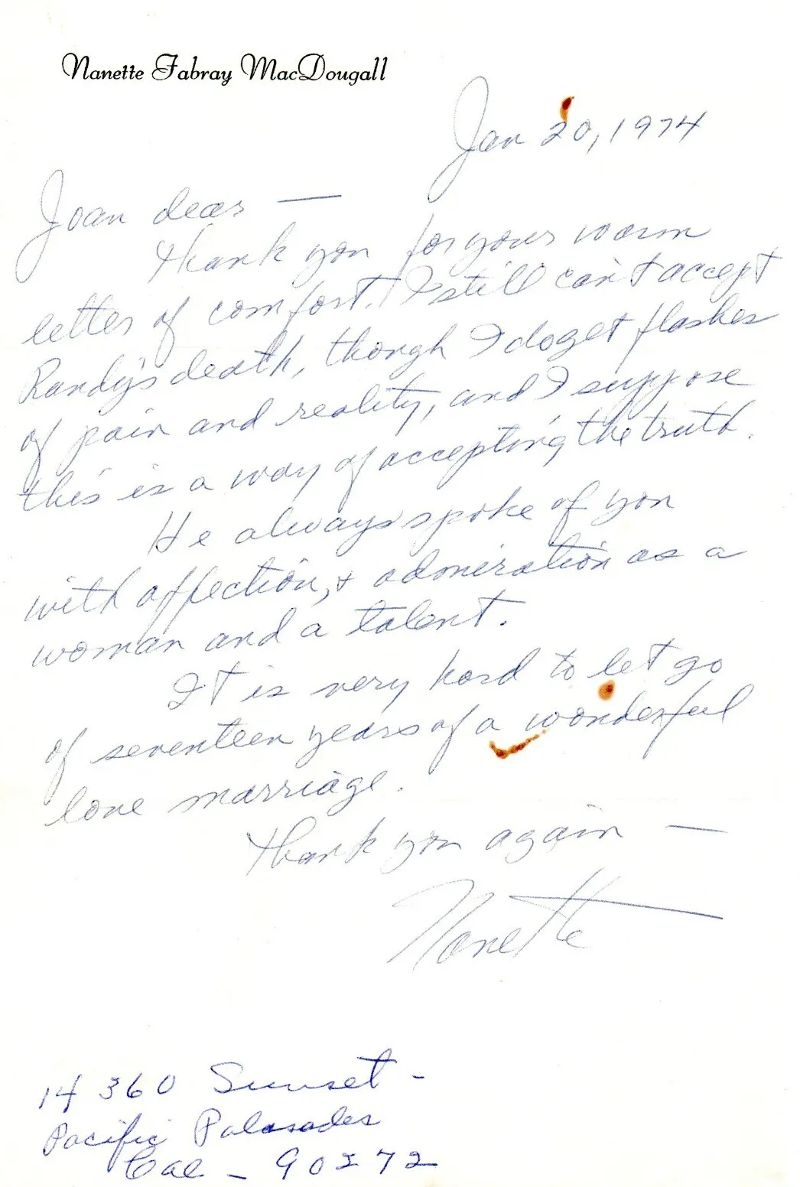 Nanette Fabray MacDougall
Jan 20, 1974
Joan dear —
Thank you for your warm
letter of comfort. I still can't accept
Randy's death, though I do get flashes
of pain and reality, and I suppose
this is a way of accepting the truth.
He always spoke of you
with affection, & admiration as a
woman and a talent.
It is very hard to let go
of seventeen years of a wonderful
love marriage.
Thank you again —
Nanette
14360 Sunset -
Pacific Palasades
Cal - 90272